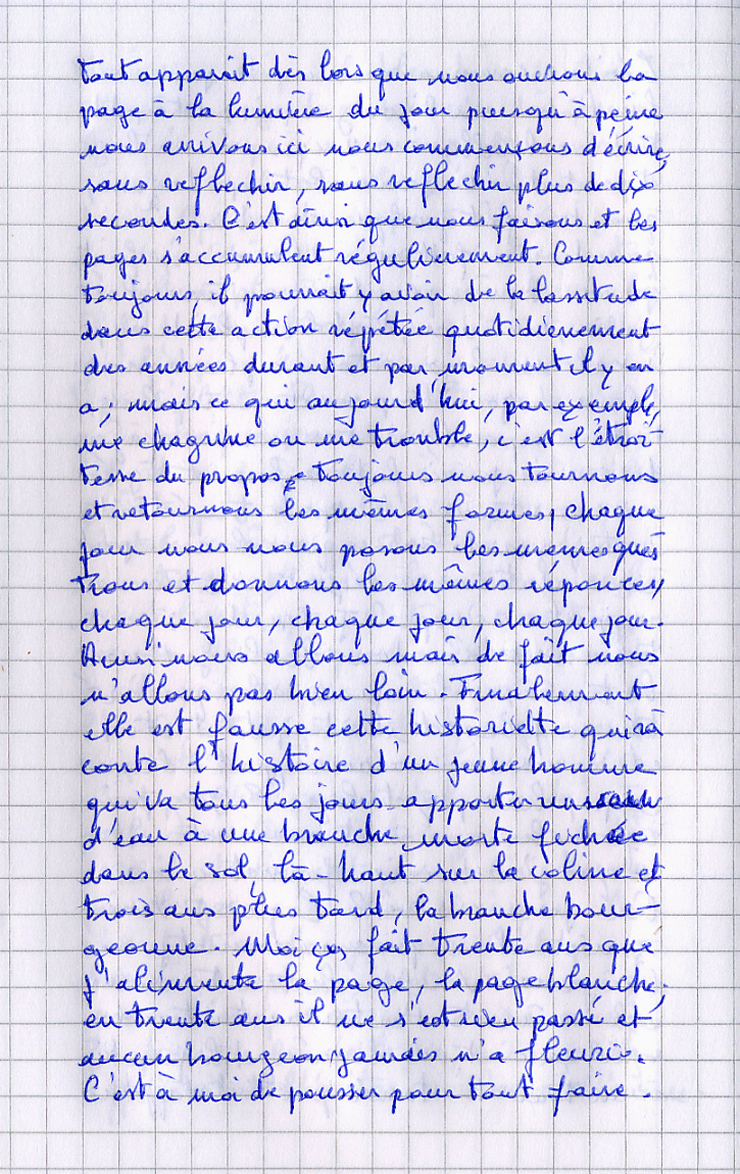 tout apparait dès lors que nous ouvrons la
page à la lumière du jour puisqu'à peine
nous arrivons ici nous commençons d'écrire,
sans reflechir, sans reflechir plus de dix
secondes. C'est ainsi que nous faisons et les
pages s'accumulent régulièrement. Comme
toujours, il pourrait y avoir de la lassitude
dans cette action répétée quotidienement
des années durant et par moment il y en
a; mais ce qui aujourd'hui, par exemple,
me chagrine ou me trouble, c'est l'étroi
tesse du propos, toujours nous tournons
et retournons les mêmes formes, chaque
jour nous nous posons les memes ques
tions et donnons les mêmes réponses,
chaque jour, chaque jour, chaque jour.
Ainsi nous allons mais de fait nous
n'allons pas bien loin. Finalement
elle est fausse cette historiette qui ra
conte l'histoire d'un jeune homme
qui va tous les jours apporter un seau
d'eau à une branche morte fichée
dans le sol, là-haut sur la coline et
trois ans plus tard, la branche bour-
geonne. Moi ça fait trente ans que
j'alimente la page, la page blanche,
en trente ans il ne s'est rien passé et
aucun bourgeon jamais n'a fleuri.
C'est à moi de pousser pour tout faire.